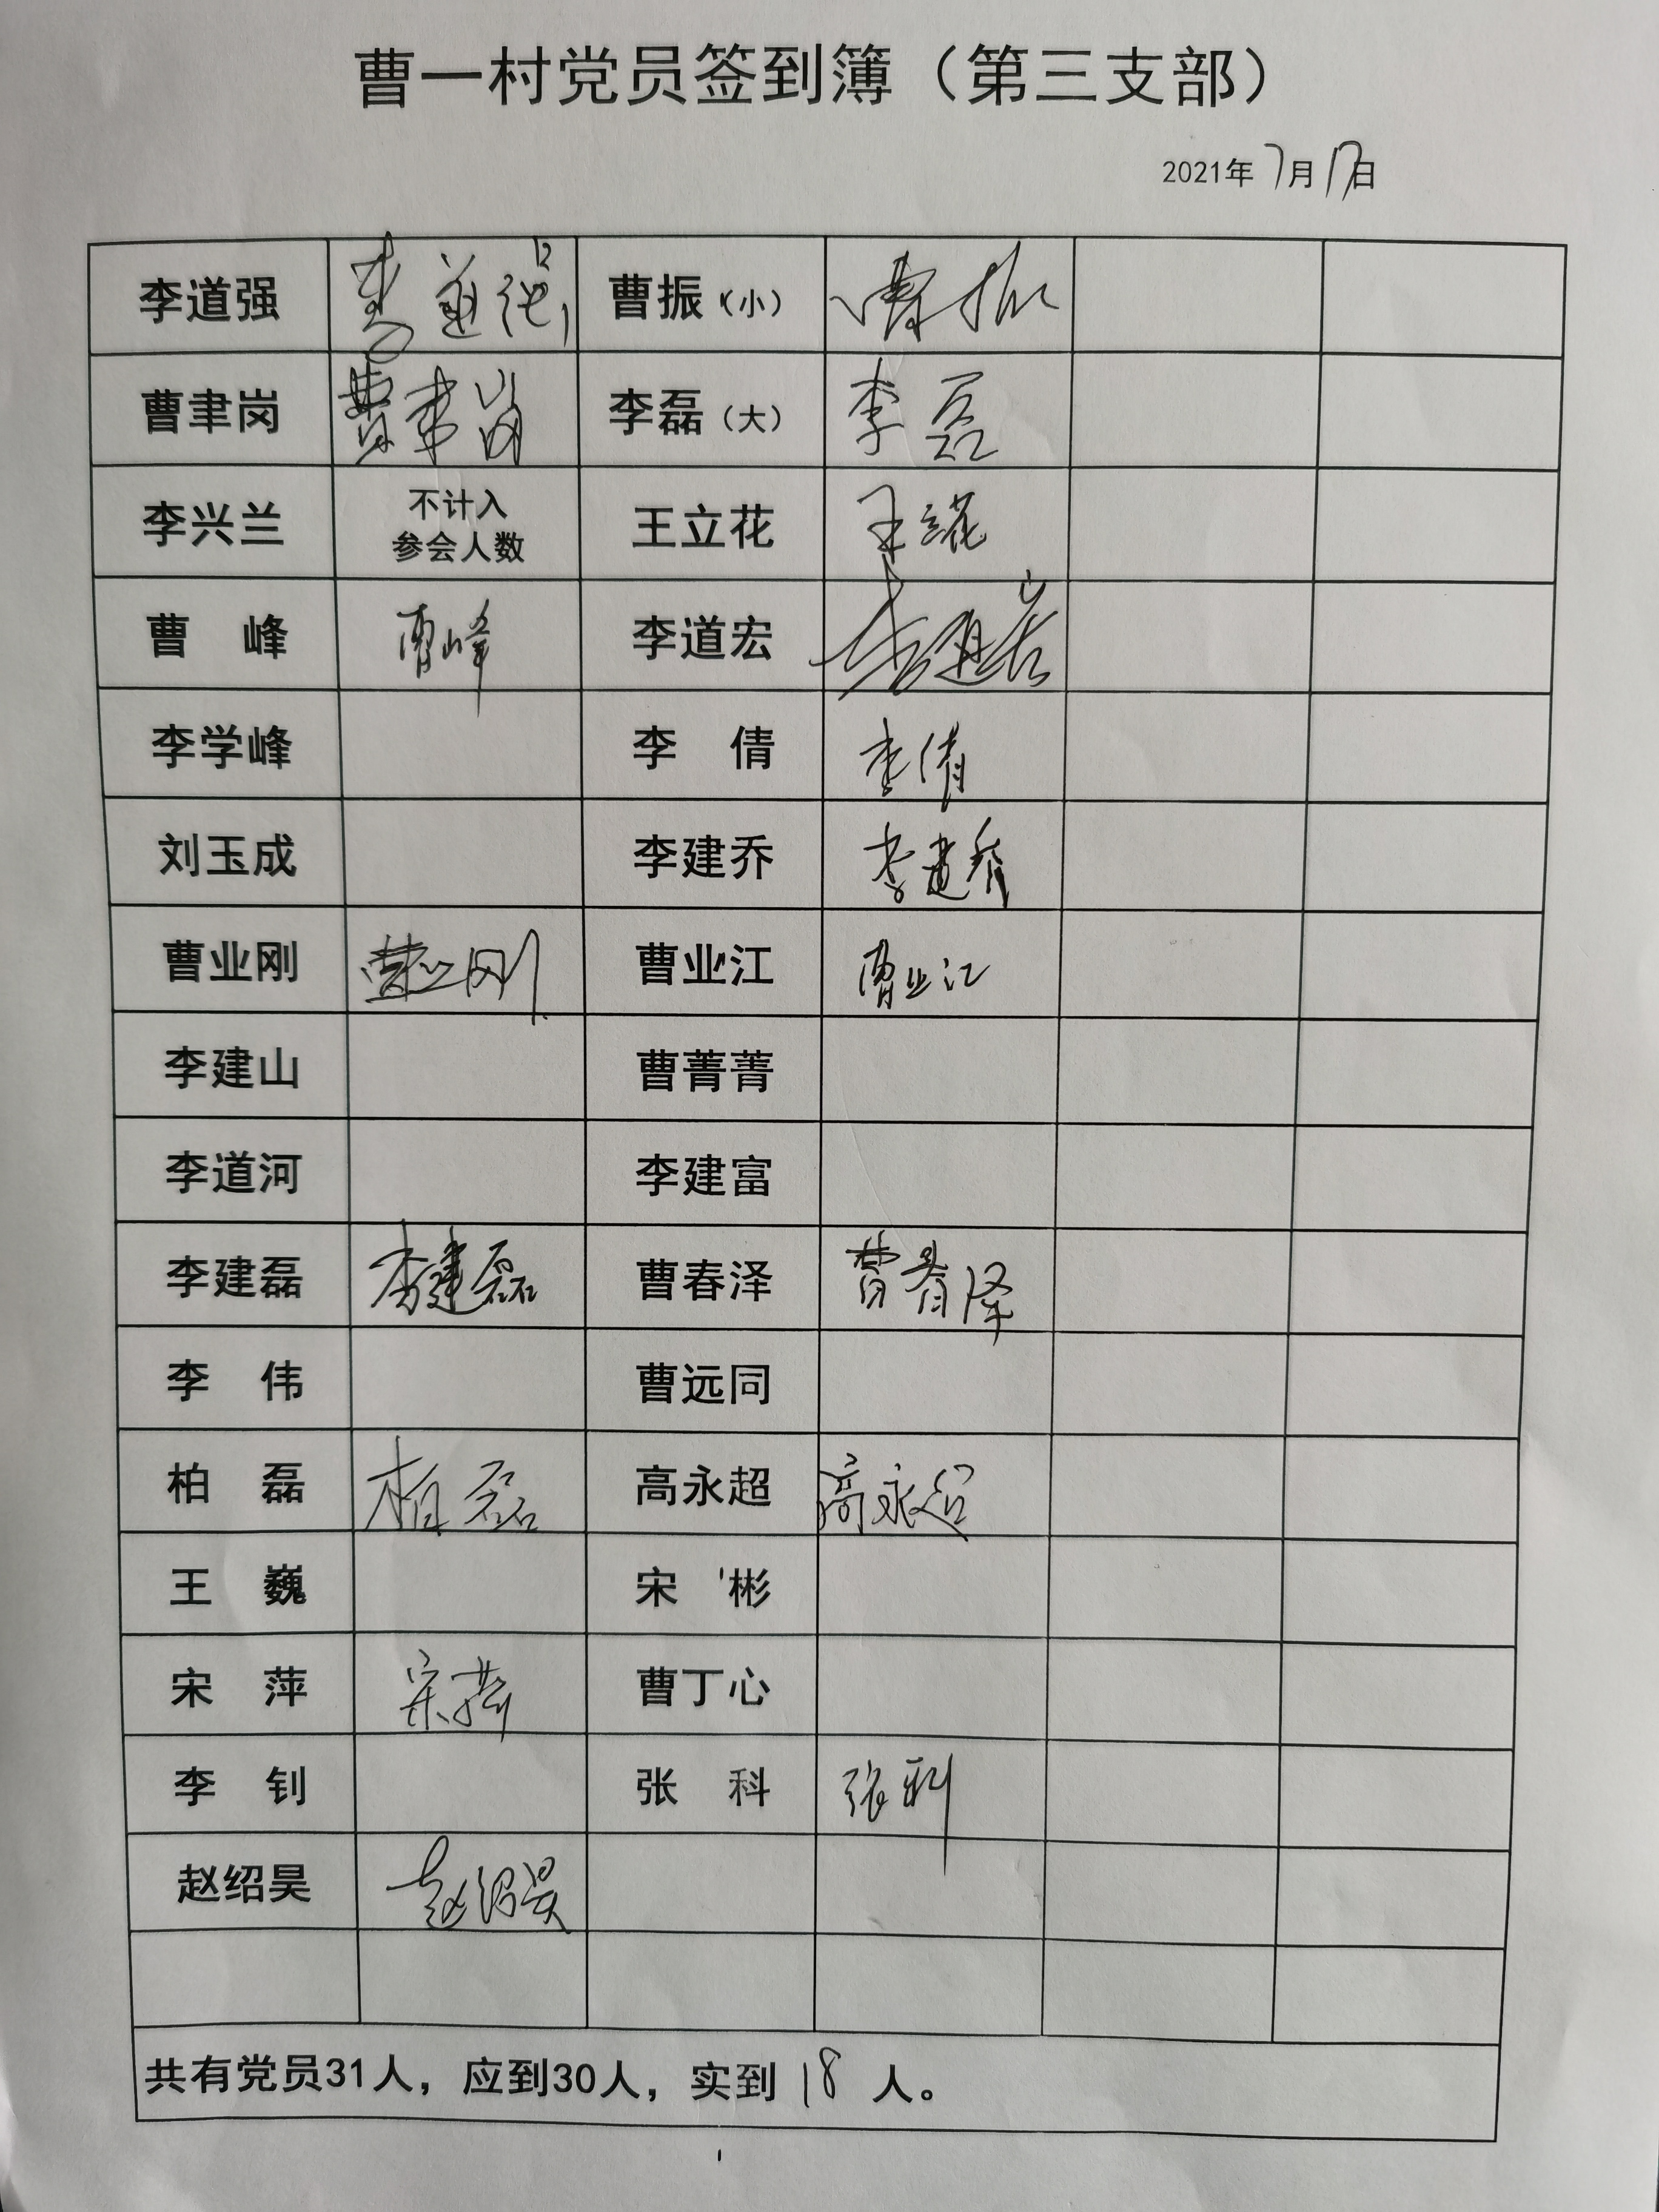 曹一村党员签到簿（第三支部）
2021年7月17日
李道强 李道强 曹振（小） 曹振
曹聿岗 曹聿岗 李磊（大） 李磊
李兴兰 不计入 王立花 王立花
参会人数
曹 峰 曹峰 李道宏 李道宏
李学峰 李 倩 李倩
刘玉成 李建乔 李建乔
曹业刚 曹业刚 曹业江 曹业江
李建山 曹菁菁
李道河 李建富
李建磊 李建磊 曹春泽 曹春泽
李 伟 曹远同
柏 磊 柏磊 高永超 高永超
王 巍 宋 彬
宋 萍 宋萍 曹丁心
李 钊 张 科 张科
赵绍昊 赵绍昊
共有党员31人，应到30人，实到18人。